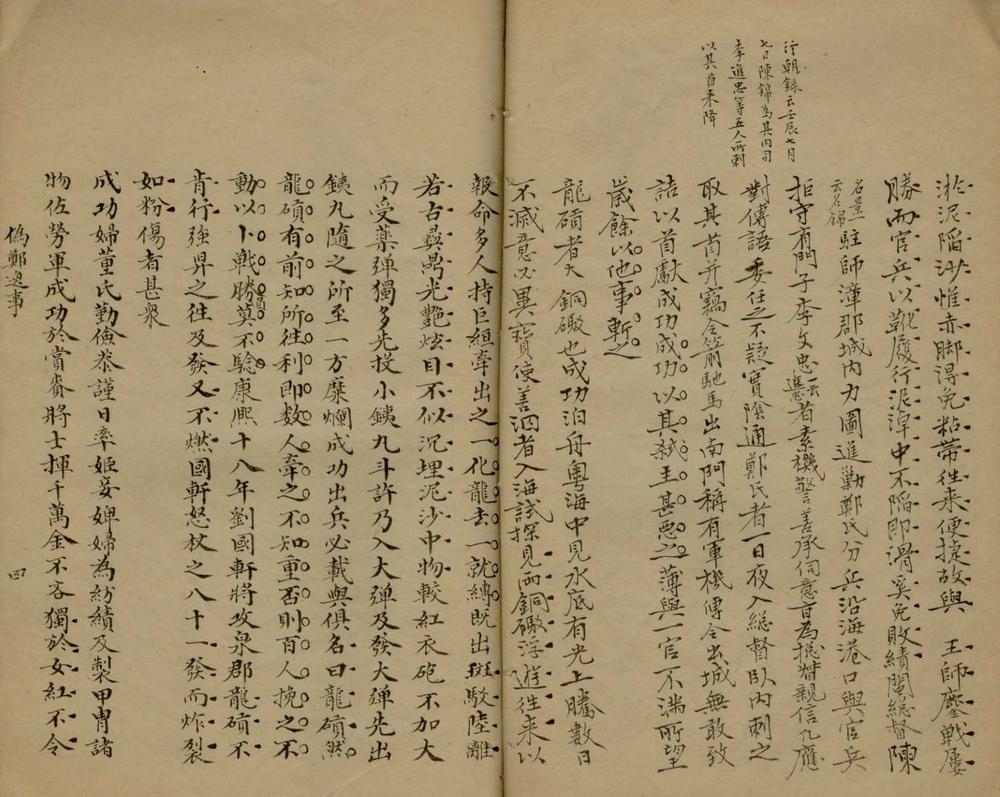 行朝錄云壬辰七月
七日陳錦為其内司
李進忠等五人所刺
以其首来降
淤泥陷沙惟赤脚得免粘帶徃来便捷故與 王師鏖戰屢
勝而官兵以靴履行泥淖中不陷即滑奚免敗績閩總督陳
名景
云名錦
駐師漳郡城内力圖進勦鄭氏分兵沿海港口與官兵
拒守有門子李文忠者素機警善承伺意旨為總督親信凡應
進 云
對傳語委任之不疑實陰通鄭氏者一日夜入總督卧内刺之
取其首并竊令箭馳馬出南門稱有軍機傳令出城無敢致
詰以首獻成功成功以其弒主甚惡之薄與一官不滿所望
歲餘以他事斬之
龍碽者大銅礟也成功泊舟粵海中見水底有光上騰數日
不滅意必異寶使善泅者入海試探見兩銅礟浮遊徃来以
報命多人持巨絙牽出之一化龍去一就縛既出斑駁陸離
若古彝鼎光艷炫目不似沉埋泥沙中物較紅衣砲不加大
而受藥弹獨多先投小鐵丸斗許乃入大弹及發大弹先出
鐵丸隨之所至一方糜爛成功出兵必載與俱名曰龍碽然
龍碽有前知所徃利即數人牽之不知重否則百人挽之不
動以卜戰勝莫不驗康熙十八年劉國軒將攻泉郡龍碽不
肯行強舁之徃及發又不燃國軒怒杖之八十一發而炸裂
如粉傷者甚衆
成功婦董氏勤儉恭謹日率姬妾婢婦為紡績及製甲胄諸
物佐勞軍成功於賞賚將士揮千萬金不吝獨於女紅不令
偽鄭逸事 四